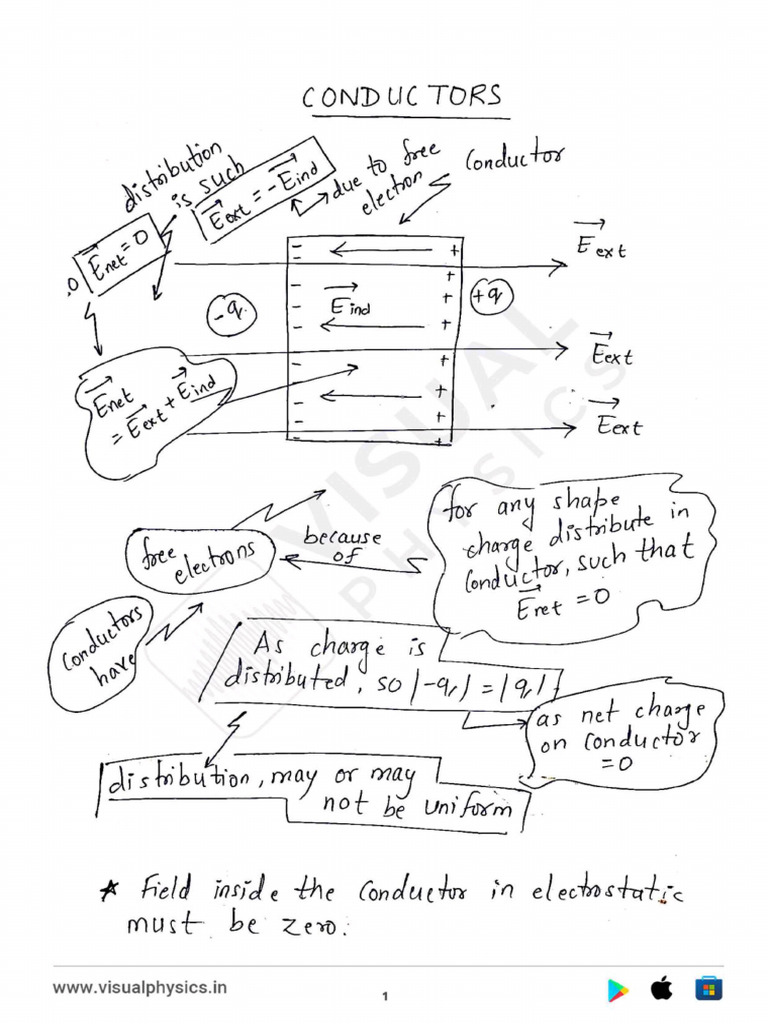 CONDUCTORS
distribution
is such
E⃗ext = -E⃗ind
due to free
electron
Conductor
E⃗net = 0
E⃗ext
-q
E⃗ind
+q
E⃗ext
E⃗net
= E⃗ext + E⃗ind
E⃗ext
for any shape
charge distribute in
conductor, such that
E⃗net = 0
because
of
free
electrons
Conductors
have
As charge is
distributed, so |-q| = |q|
as net charge
on conductor
= 0
distribution, may or may
not be uniform
* Field inside the conductor in electrostatic
must be zero.
VISUAL
PHYSICS
www.visualphysics.in
1